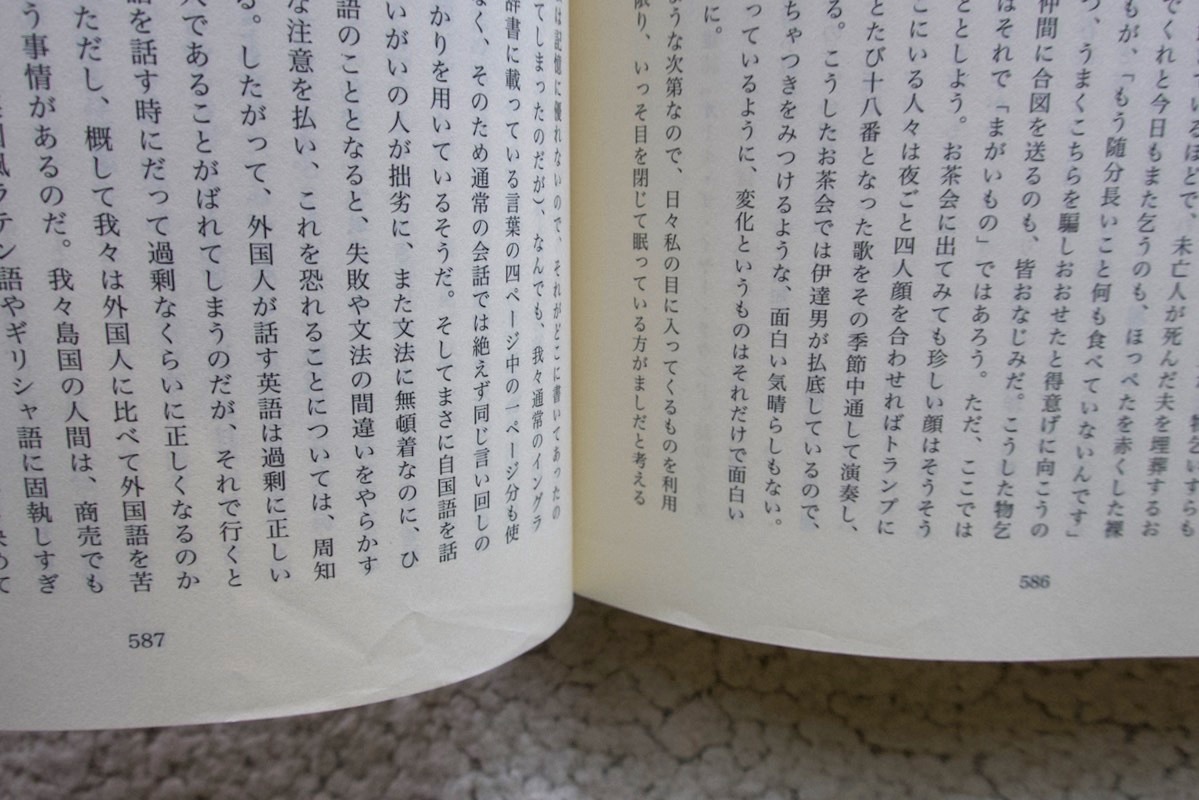 いるほどで、
でくれと今日もまた乞うのも、ほっぺたを赤くした裸
もが、「もう随分長いこと何も食べていないんです」
つ、うまくこちらを騙しおおせたと得意げに向こうの
仲間に合図を送るのも、皆おなじみだ。こうした物乞
はそれで「まがいもの」ではあろう。ただ、ここでは
ととしよう。お茶会に出てみても珍しい顔はそうそう
こにいる人々は夜ごと四人顔を合わせればトランプに
とたび十八番となった歌をその季節中通して演奏し、
る。こうしたお茶会では伊達男が払底しているので、
ちゃつきをみつけるような、面白い気晴らしもない。
っているように、変化というものはそれだけで面白い
に。
ような次第なので、日々私の目に入ってくるものを利用
限り、いっそ目を閉じて眠っている方がましだと考える
586
は記憶に優れないので、それがどこに書いてあったの
てしまったのだが）、なんでも、我々通常のイングラ
辞書に載っている言葉の四ページ中の一ページ分も使
なく、そのため通常の会話では絶えず同じ言い回しの
かりを用いているそうだ。そしてまさに自国語を話
いがいの人が拙劣に、また文法に無頓着なのに、ひ
語のこととなると、失敗や文法の間違いをやらかす
な注意を払い、これを恐れることについては、周知
る。したがって、外国人が話す英語は過剰に正しい
人であることがばれてしまうのだが、それで行くと
語を話す時にだって過剰なくらいに正しくなるのか
ただし、概して我々は外国人に比べて外国語を苦
う事情があるのだ。我々島国の人間は、商売でも
風ラテン語やギリシャ語に固執しすぎ
587